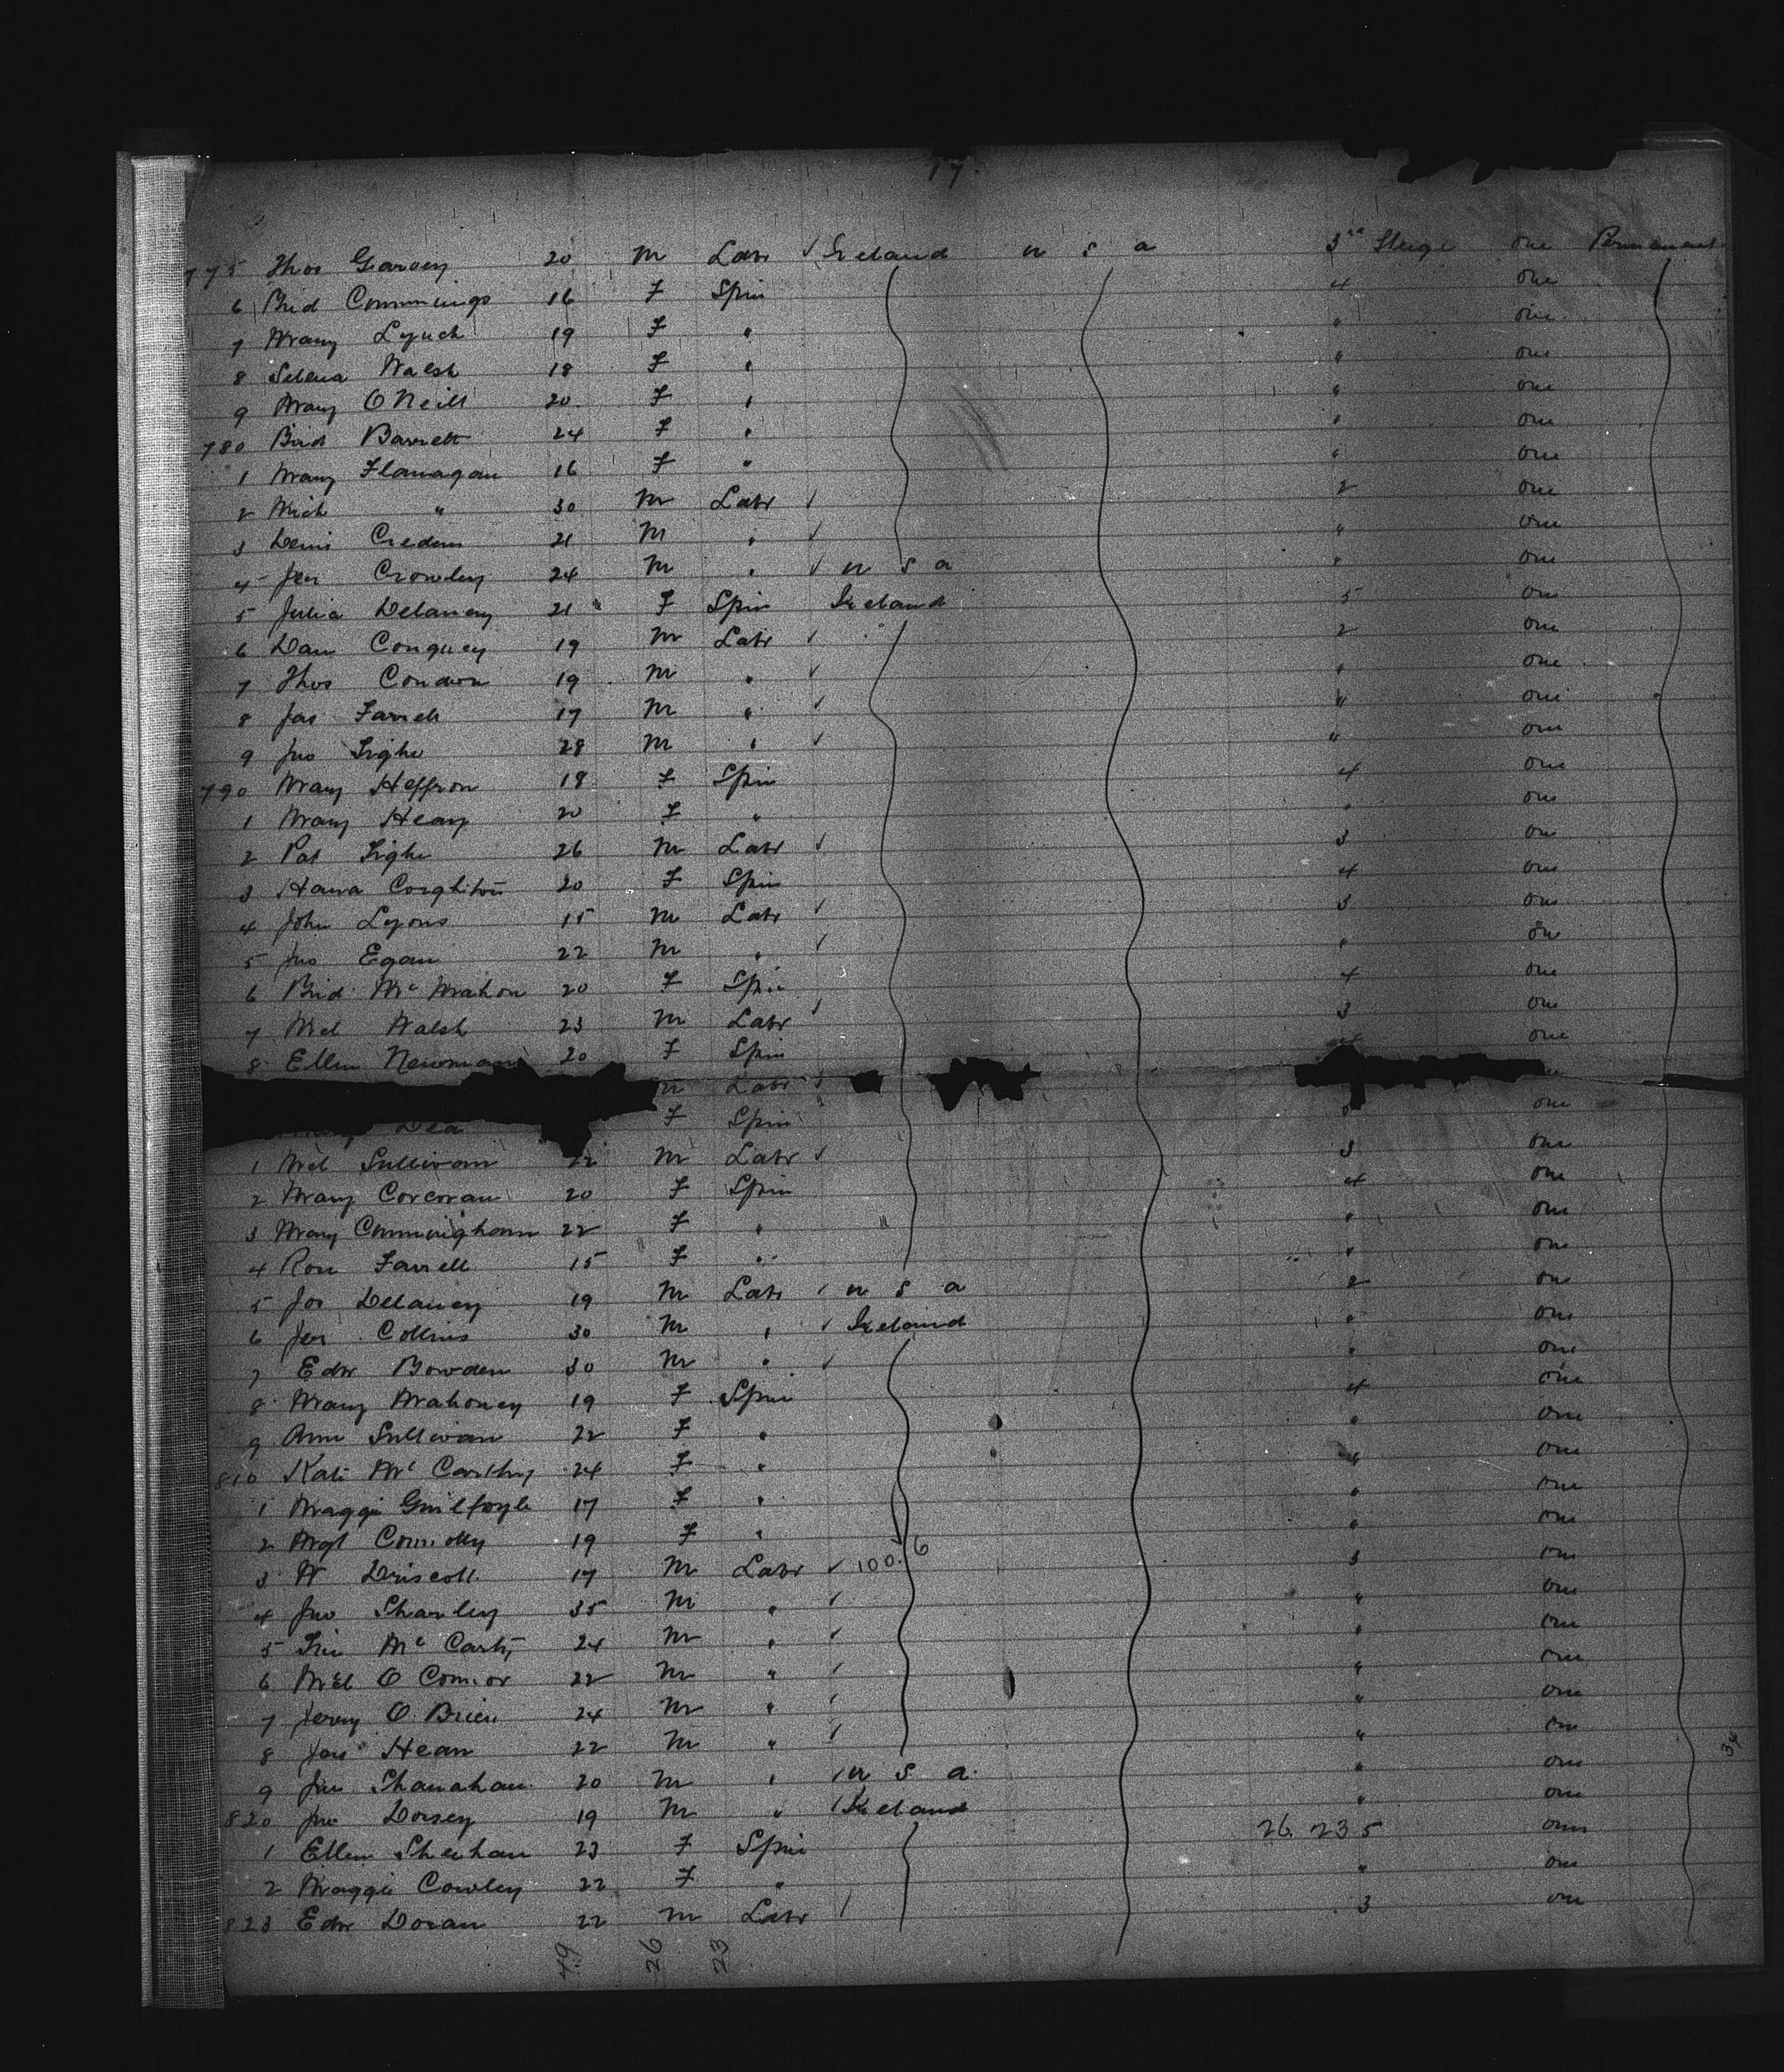 17.
775 Thos Garvey 20 M Labr ✓ Ireland U S a 3rd Sterge one Permanent
6 Brid Commings 16 F Spin 4 one
7 Mary Lynch 19 F " " one
8 Selena Walsh 18 F " " one
9 Mary O Neill 20 F " " one
780 Brid Barrett 24 F " " one
1 Mary Flanagan 16 F " " one
2 Mich " 30 M Labr ✓ 2 one
3 Denis Credon 21 M " ✓ " one
4 Jer Crowley 24 M " ✓ U S a " one
5 Julia Delaney 21 F Spin Ireland 5 one
6 Dan 19 M Labr ✓ 2 one
7 Thos Condon 19 M " ✓ " one
8 Jas Farrell 17 M " ✓ " one
9 Jno Tighe 28 M " ✓ " one
790 Mary Heffron 18 F Spin 4 one
1 Mary 20 F " " one
2 Pat Tighe 26 M Labr ✓ 3 one
3 Hana 20 F Spin 4 one
4 John Lyons 15 M Labr ✓ 3 one
5 Jno Egan 22 M " ✓ " one
6 Brid Mc Mahon 20 F Spin 4 one
7 Mcl Walsh 23 M Labr ✓ 3 one
8 Ellen Newman 20 F Spin 4 one
M Labr ✓
F Spin one
1 Mcl Sullivan 22 M Labr ✓ 3 one
2 Mary Corcoran 20 F Spin 4 one
3 Mary Cunningham 22 F " " one
4 Rose Farrell 15 F " " one
5 Jos Delaney 19 M Labr ✓ U S a 2 one
6 Jer Collins 30 M " ✓ Ireland " one
7 Edw Bowden 30 M " ✓ " one
8 Mary Mahoney 19 F Spin 4 one
9 Ann Sullivan 22 F " " one
810 Kate Mc Carthy 24 F " " one
1 Maggie Guilfoyle 17 F " " one
2 Mgt Connolly 19 F " " one
3 W Driscoll 17 M Labr ✓ 100.6 3 one
4 Jno Shanley 35 M " ✓ " one
5 Tim Mc Carty 24 M " ✓ " one
6 Mcl O Connor 22 M " ✓ " one
7 Jerry O Brien 24 M " ✓ " one
8 Jas Hean 22 M " ✓ " one
9 Jno Shanahan 20 M " ✓ U S a. " one
820 Jno Dorsey 19 M " ✓ Ireland " one
1 Ellen Sheehan 23 F Spin 26. 23 5 one
2 Maggie Cowley 22 F " " one
823 Edw Doran 22 M Labr ✓ 3 one
49 26 23
34